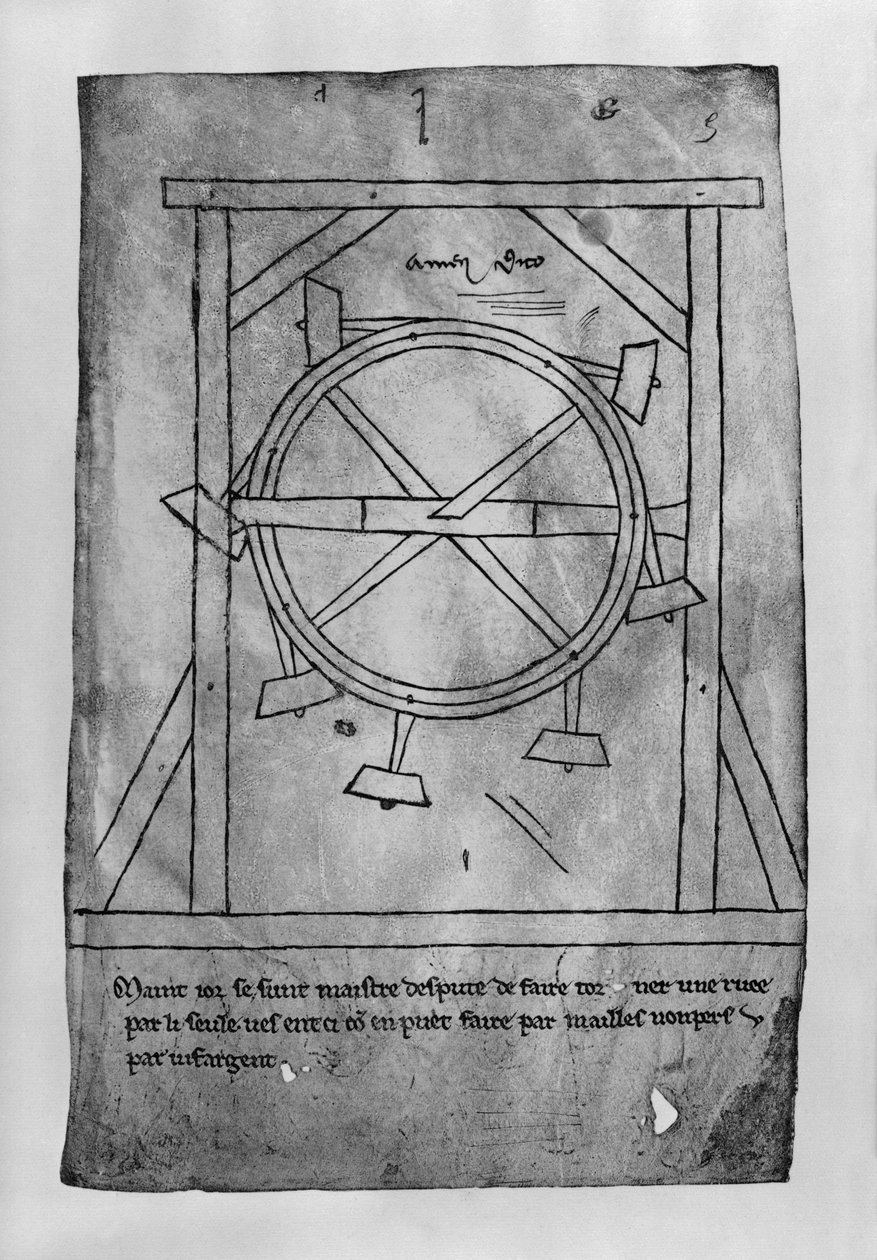 Maint ior se sunt maistre despute de faire tor ner une ruee
par li seule ves ent ci cō en puet faire par mailles nonpers v
par vif argent